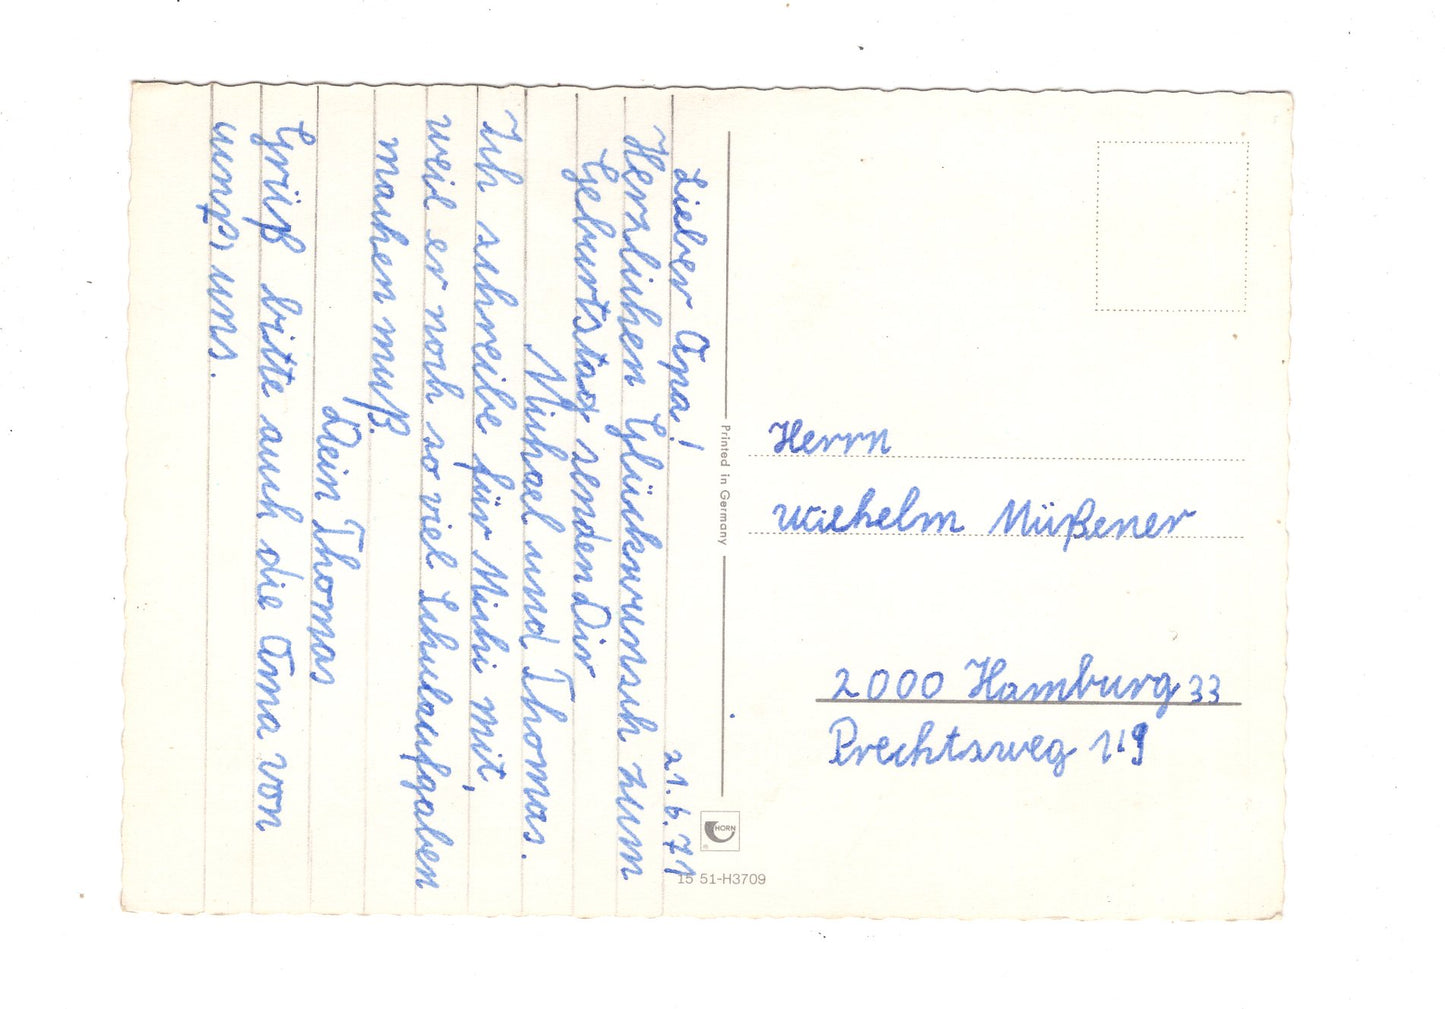 21.6.71
Lieber Opa!
Herzlichen Glückwunsch zum
Geburtstag senden Dir
Michael und Thomas.
Ich schreibe für Michi mit,
weil er noch so viel Schulaufgaben
machen muß.
Dein Thomas
Grüß bitte auch die Oma von
uns.
Printed in Germany
Herrn
Wilhelm Müßener
2000 Hamburg 33
Prechtsweg 119
HORN
15 51-H3709